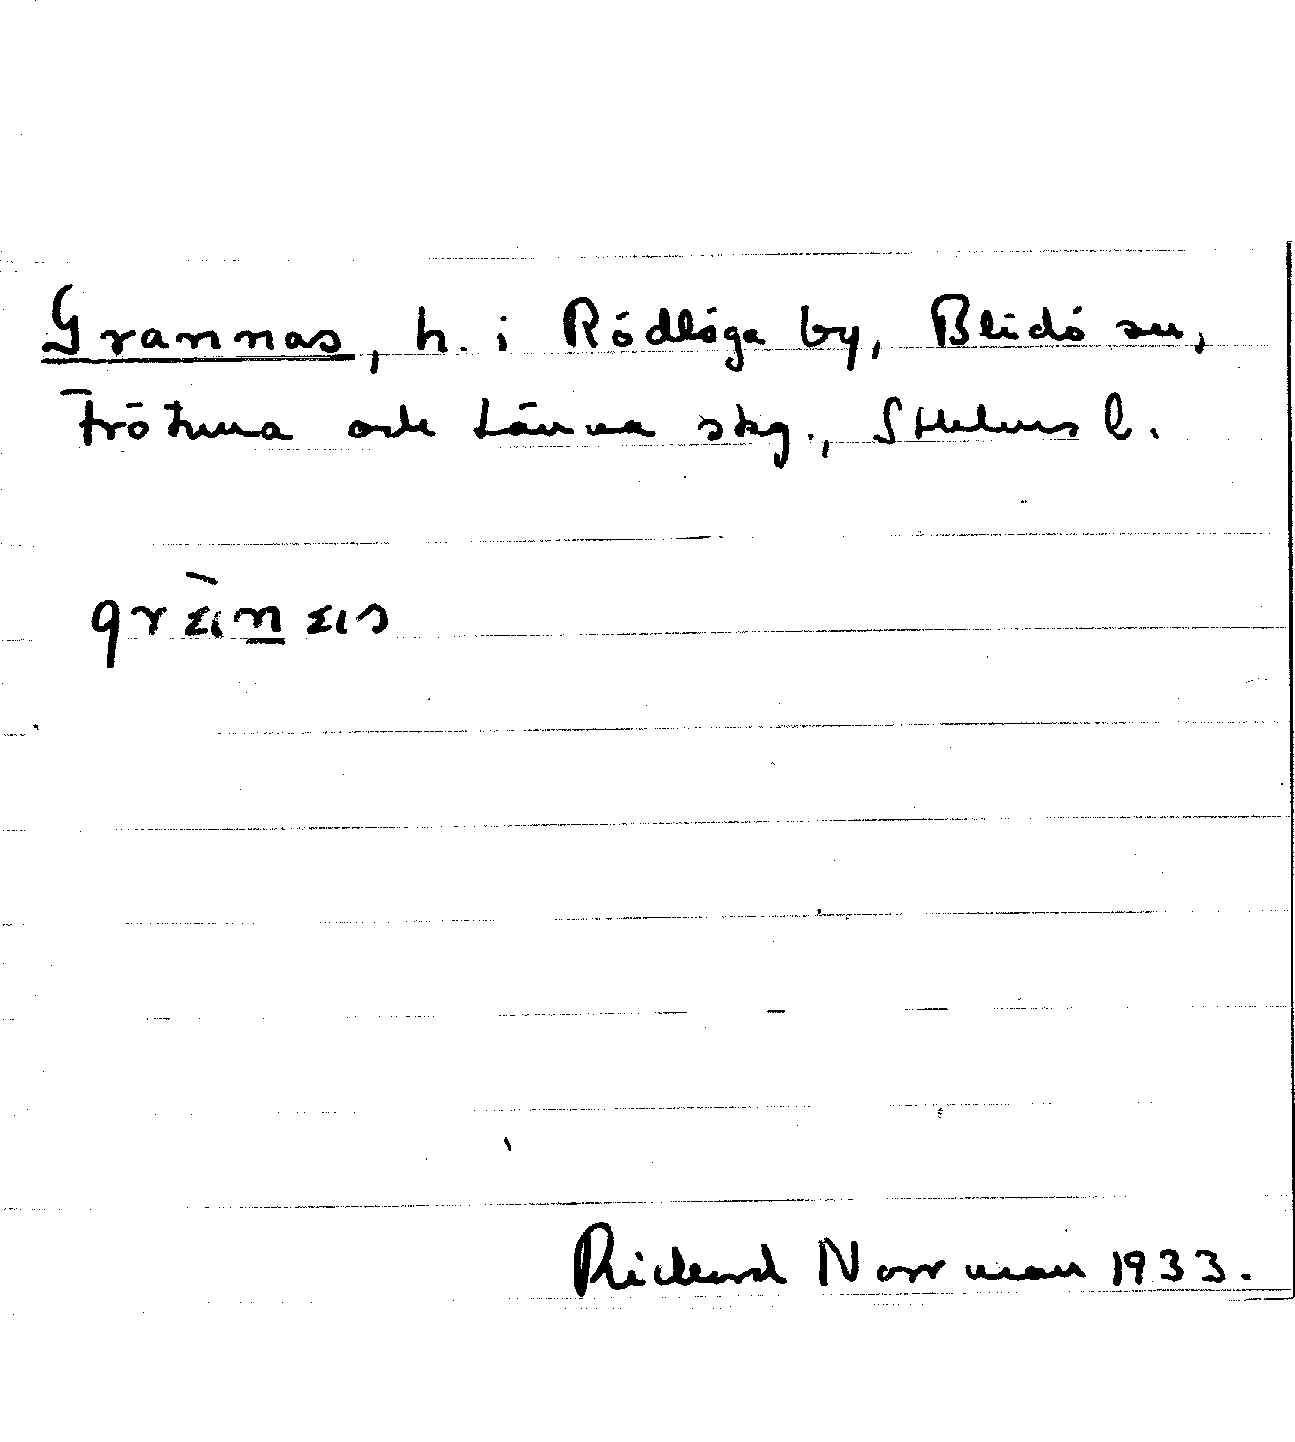 Grannas, h. i Rödlöga by, Blidö sn,
Frötuna och Länna skg., Sthlms l.
Rickard Norrman 1933.